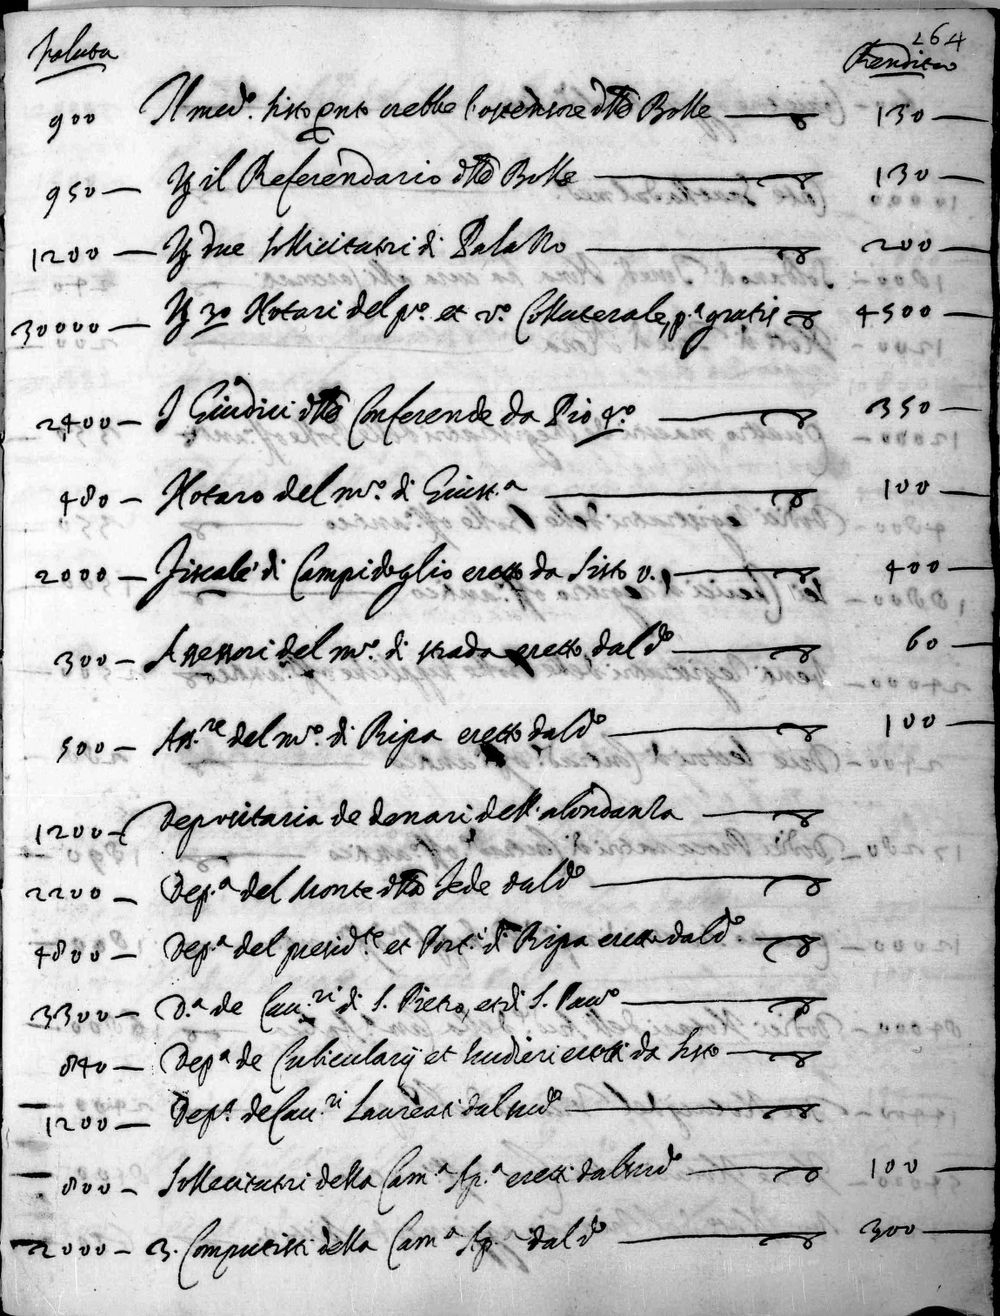 264
Valuta Rendita
900 Il med.o Sisto qnto erebbe l'ostensore dlle Bolle 130
950 — Y il Referendario dlle Bolle 130 —
1200 — Y due sollicitatori di Palazzo 200
30000 — Y 30 Notari del p.o et v.o Collaterale, p.te gratis 4500 —
2400 — I Giudici dlle Conferende da Pio 4.o 350 —
480 — Notaro del m.ro di Giust.a 100 —
2000 — Fiscale di Campidoglio eretto da Sisto V. 400 —
300 — Assessori del m.ro di strada eretto dal d.o 60 —
500 — Ass.re del m.ro di Ripa eretto dal d.o 100 —
1200 — Depositaria de denari dell'abondanza
2200 — Dep.a del Monte dlla fede dal d.o
4800 — Dep.a del presid.te et Port.i di Ripa eretta dal d.o
3300 — D.a de Cau.ri di S. Pietro, et di S. Pauo
840 — Dep.a de Cubicularij et Scudieri eretti da Sisto
1200 — Dep.a de Cau.ri Laureati dal med.o
800 — Sollecitatori della Cam.a Ap.a eretti dal med.o 100 —
2000 — 3. Computisti della Cam.a Ap.a dal d.o 300 —